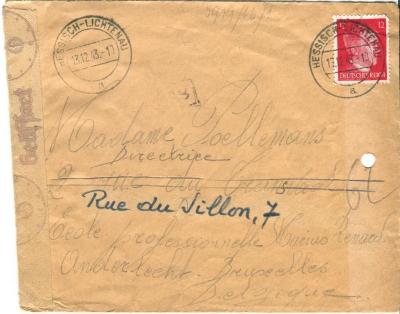 HESSISCH-LICHTENAU
13.12.43.-17
a
HESSISCH-LICHTENAU
13.12.43.-17
a
12
DEUTSCHES REICH
Geöffnet
Madame Poellemans
Directrice
rue du
Rue du Sillon, 7
Ecole professionnelle Marius Renard
Anderlecht-Bruxelles
Belgique